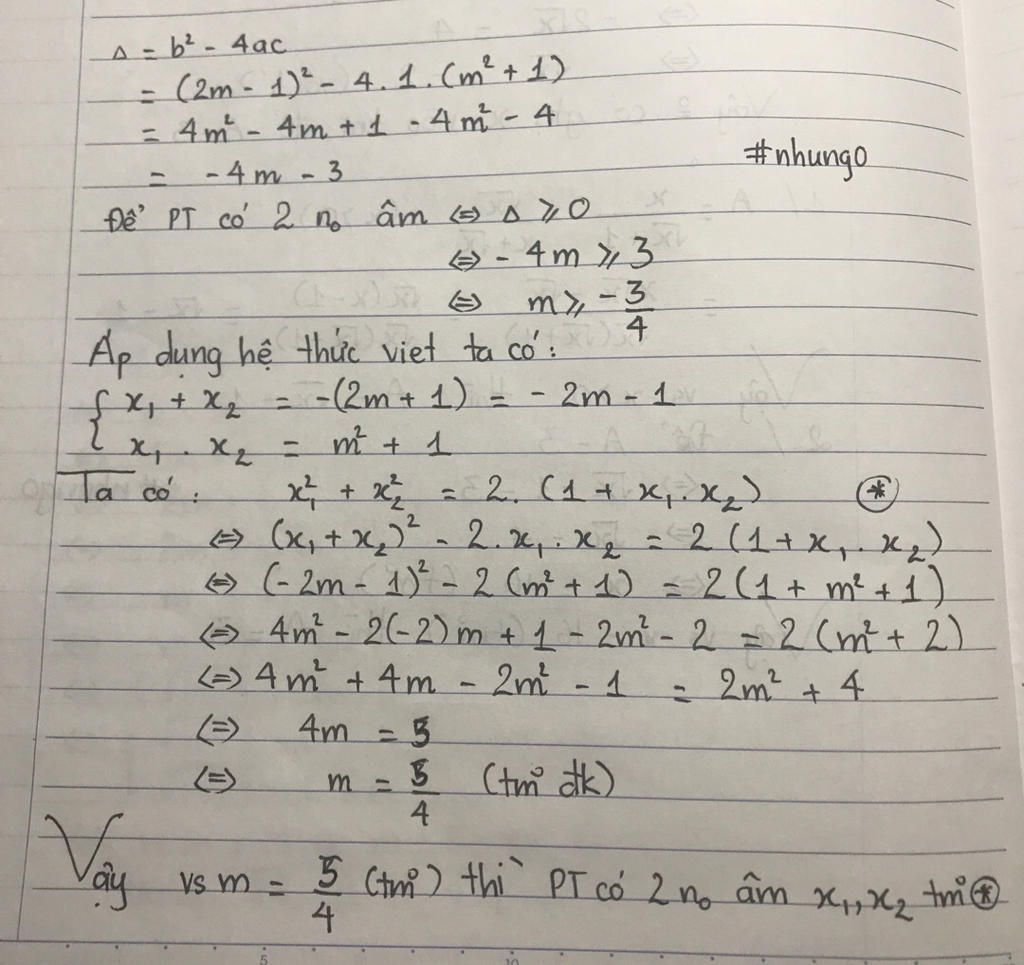 Δ = b² - 4ac
= (2m - 1)² - 4.1.(m² + 1)
= 4m² - 4m + 1 - 4m² - 4
= -4m - 3
#nhung0
Để PT có 2 n₀ âm ⇔ Δ ⩾ 0
⇔ - 4m ⩾ 3
⇔ m ⩾ -3/4
Áp dụng hệ thức viet ta có:
{ x₁ + x₂ = -(2m + 1) = - 2m - 1
x₁ . x₂ = m² + 1
Ta có: x₁² + x₂² = 2. (1 + x₁. x₂) (*)
⇔ (x₁ + x₂)² - 2. x₁. x₂ = 2 (1 + x₁ . x₂)
⇔ (-2m - 1)² - 2 (m² + 1) = 2 (1 + m² + 1)
⇔ 4m² - 2(-2)m + 1 - 2m² - 2 = 2 (m² + 2)
⇔ 4m² + 4m - 2m² - 1 = 2m² + 4
⇔ 4m = 5
⇔ m = 5/4 (tm° đk)
Vậy vs m = 5/4 (tm°) thì PT có 2 n₀ âm x₁, x₂ tm° (*)
5
10